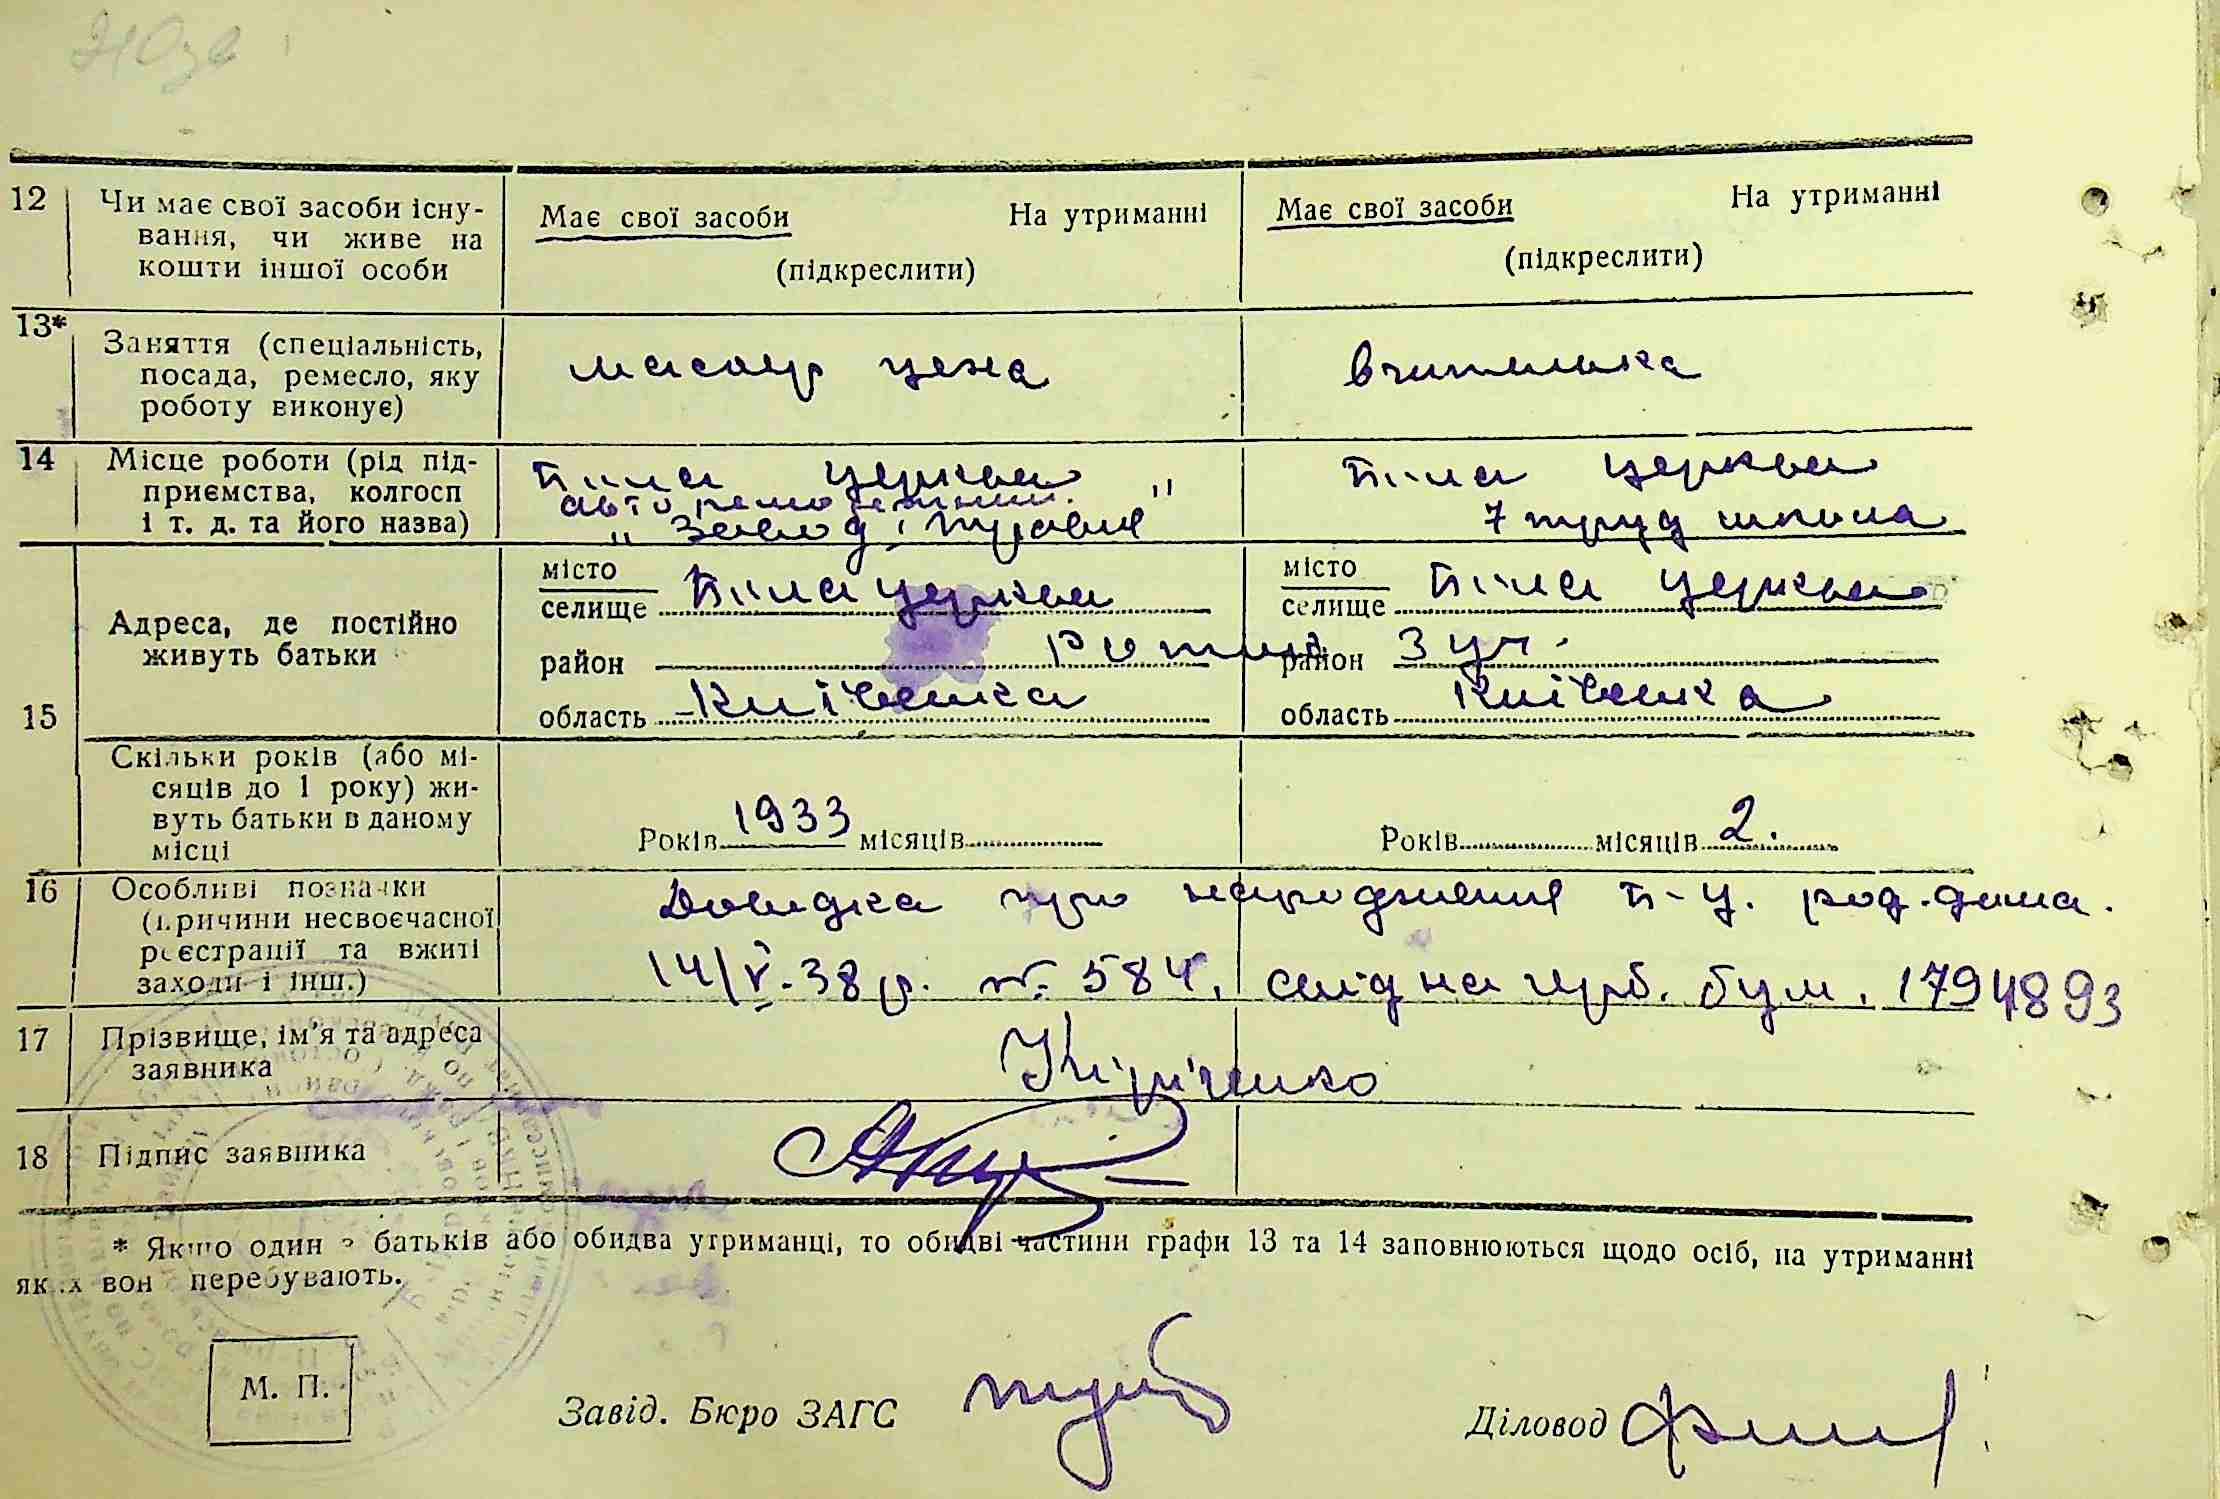 12 Чи має свої засоби існу- Має свої засоби На утриманні Має свої засоби На утриманні
вання, чи живе на
кошти іншої особи (підкреслити) (підкреслити)
13* Заняття (спеціальність,
посада, ремесло, яку майстр цеха вчителька
роботу виконує)
14 Місце роботи (рід під- Біла церква Біла церква
приємства, колгосп авторемонтний
і т. д. та його назва) " Завод, " 7 труд школа
місто Біла церква місто Біла церква
селище селище
15 Адреса, де постійно
живуть батьки район район 3 уч.
область Київська область Київська
Скільки років (або мі-
сяців до 1 року) жи-
вуть батьки в даному
місці Років 1933 місяців Років місяців 2.
16 Особливі позначки Довидка про народження Б-Ц. род. дома.
(причини несвоєчасної
реєстрації та вжиті 14/V-38 р. № 584, слід на герб. бум. 1794893
заходи і інш.)
17 Прізвище, ім'я та адреса
заявника Кіріченко
18 Підпис заявника
* Якщо один з батьків або обидва утриманці, то обидві частини графи 13 та 14 заповнюються щодо осіб, на утриманні
яких вони перебувають.
М. П.
Завід. Бюро ЗАГС Діловод